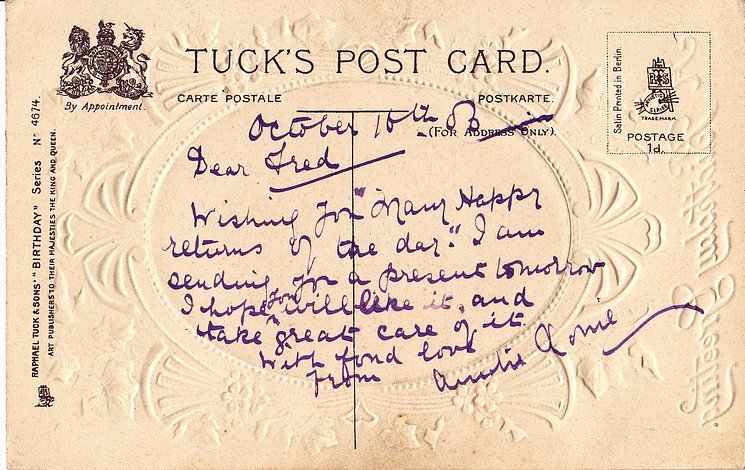 TUCK'S POST CARD.
By Appointment.
CARTE POSTALE
POSTKARTE.
(FOR ADDRESS ONLY).
Satin Printed in Berlin.
TRADE MARK
POSTAGE
1d.
RAPHAEL TUCK & SONS' "BIRTHDAY" Series No 4674.
ART PUBLISHERS TO THEIR MAJESTIES THE KING AND QUEEN.
October 10th
Dear Fred
Wishing you "Many Happy
returns of the day." I am
sending you a present tomorrow
I hope you will like it, and
take great care of it.
With fond love
from Auntie